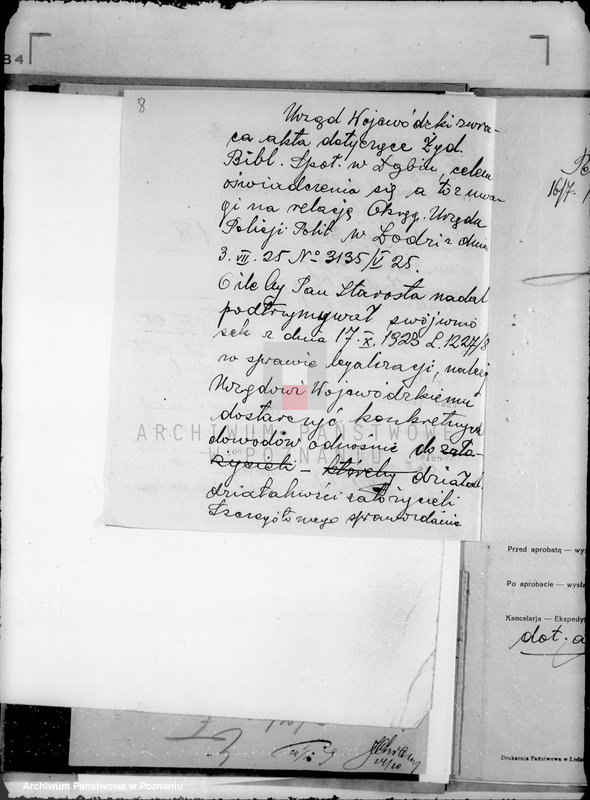 84
8
Urząd Wojewódzki zwra-
ca akta dotyczące Żyd.
Bibl. Społ. w Dąbiu, celem
oświadczenia się, a to z uwa-
gi na relację Okręg. Urzędu
Policji Polit. w Łodzi z dnia
3.VII.25 № 3135/V 25.
O ile by Pan Starosta nadal
podtrzymywał swój wnio
sek z dnia 17.X.1923 L.1227/8
w sprawie legalizacji, należy
Urzędowi Wojewódzkiemu
dostarczyć konkretnych
dowodów odnośnie do zało
życieli - któreby działal
działalności założycieli
Szczegółowego sprawozdania
16/7.
ARCHIWUM PAŃSTWOWE
W POZNANIU
Przed aprobatą — wy
Po aprobacie — wysła
Kancelarja — Ekspedy
dot. a
Drukarnia Państwowa w Łodz
Archiwum Państwowe w Poznaniu